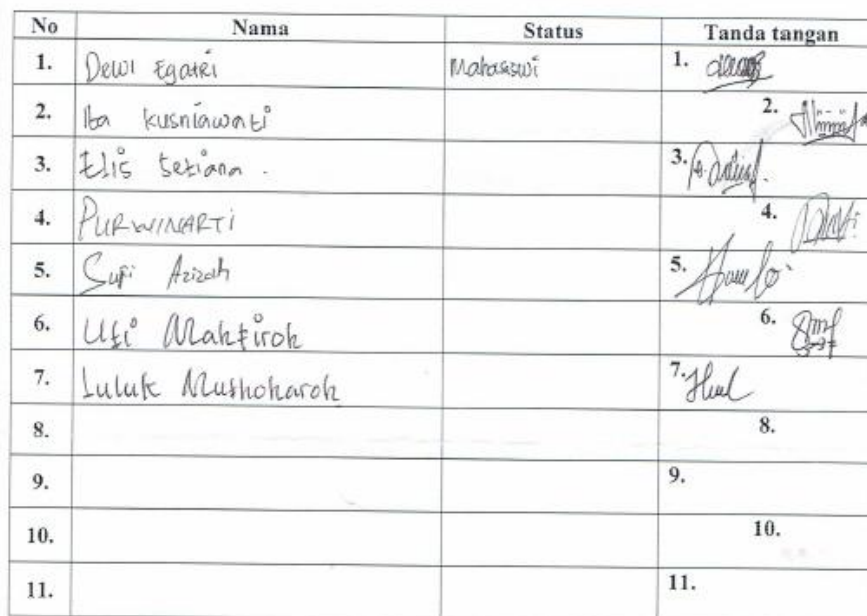 No Nama Status Tanda tangan
1. Dewi Egatri Mahasiswi 1.
2. Ita Kusniawati 2.
3. Elis Setiana. 3.
4. PURWINARTI 4.
5. Sufi Azizah 5.
6. Uti Maktiroh 6.
7. Luluk Mushokaroh 7.
8. 8.
9. 9.
10. 10.
11. 11.